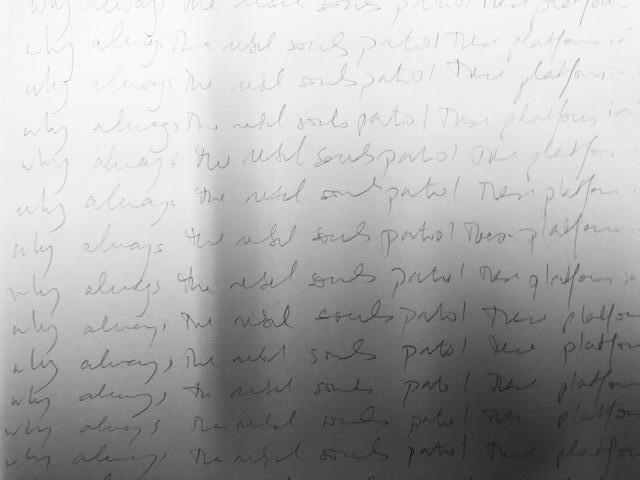 why always the rebel souls patrol these platforms in
why always the rebel souls patrol these platforms in
why always the rebel souls patrol these platforms in
why always the rebel souls patrol these platforms in
why always the rebel souls patrol these platforms
why always the rebel souls patrol these platforms
why always the rebel souls patrol these platforms
why always the rebel souls patrol these platforms in
why always the rebel souls patrol these platfor
why always the rebel souls patrol these platfor
why always the rebel souls patrol these platfor
why always the rebel souls patrol these platfor
why always the rebel souls patrol these platfor